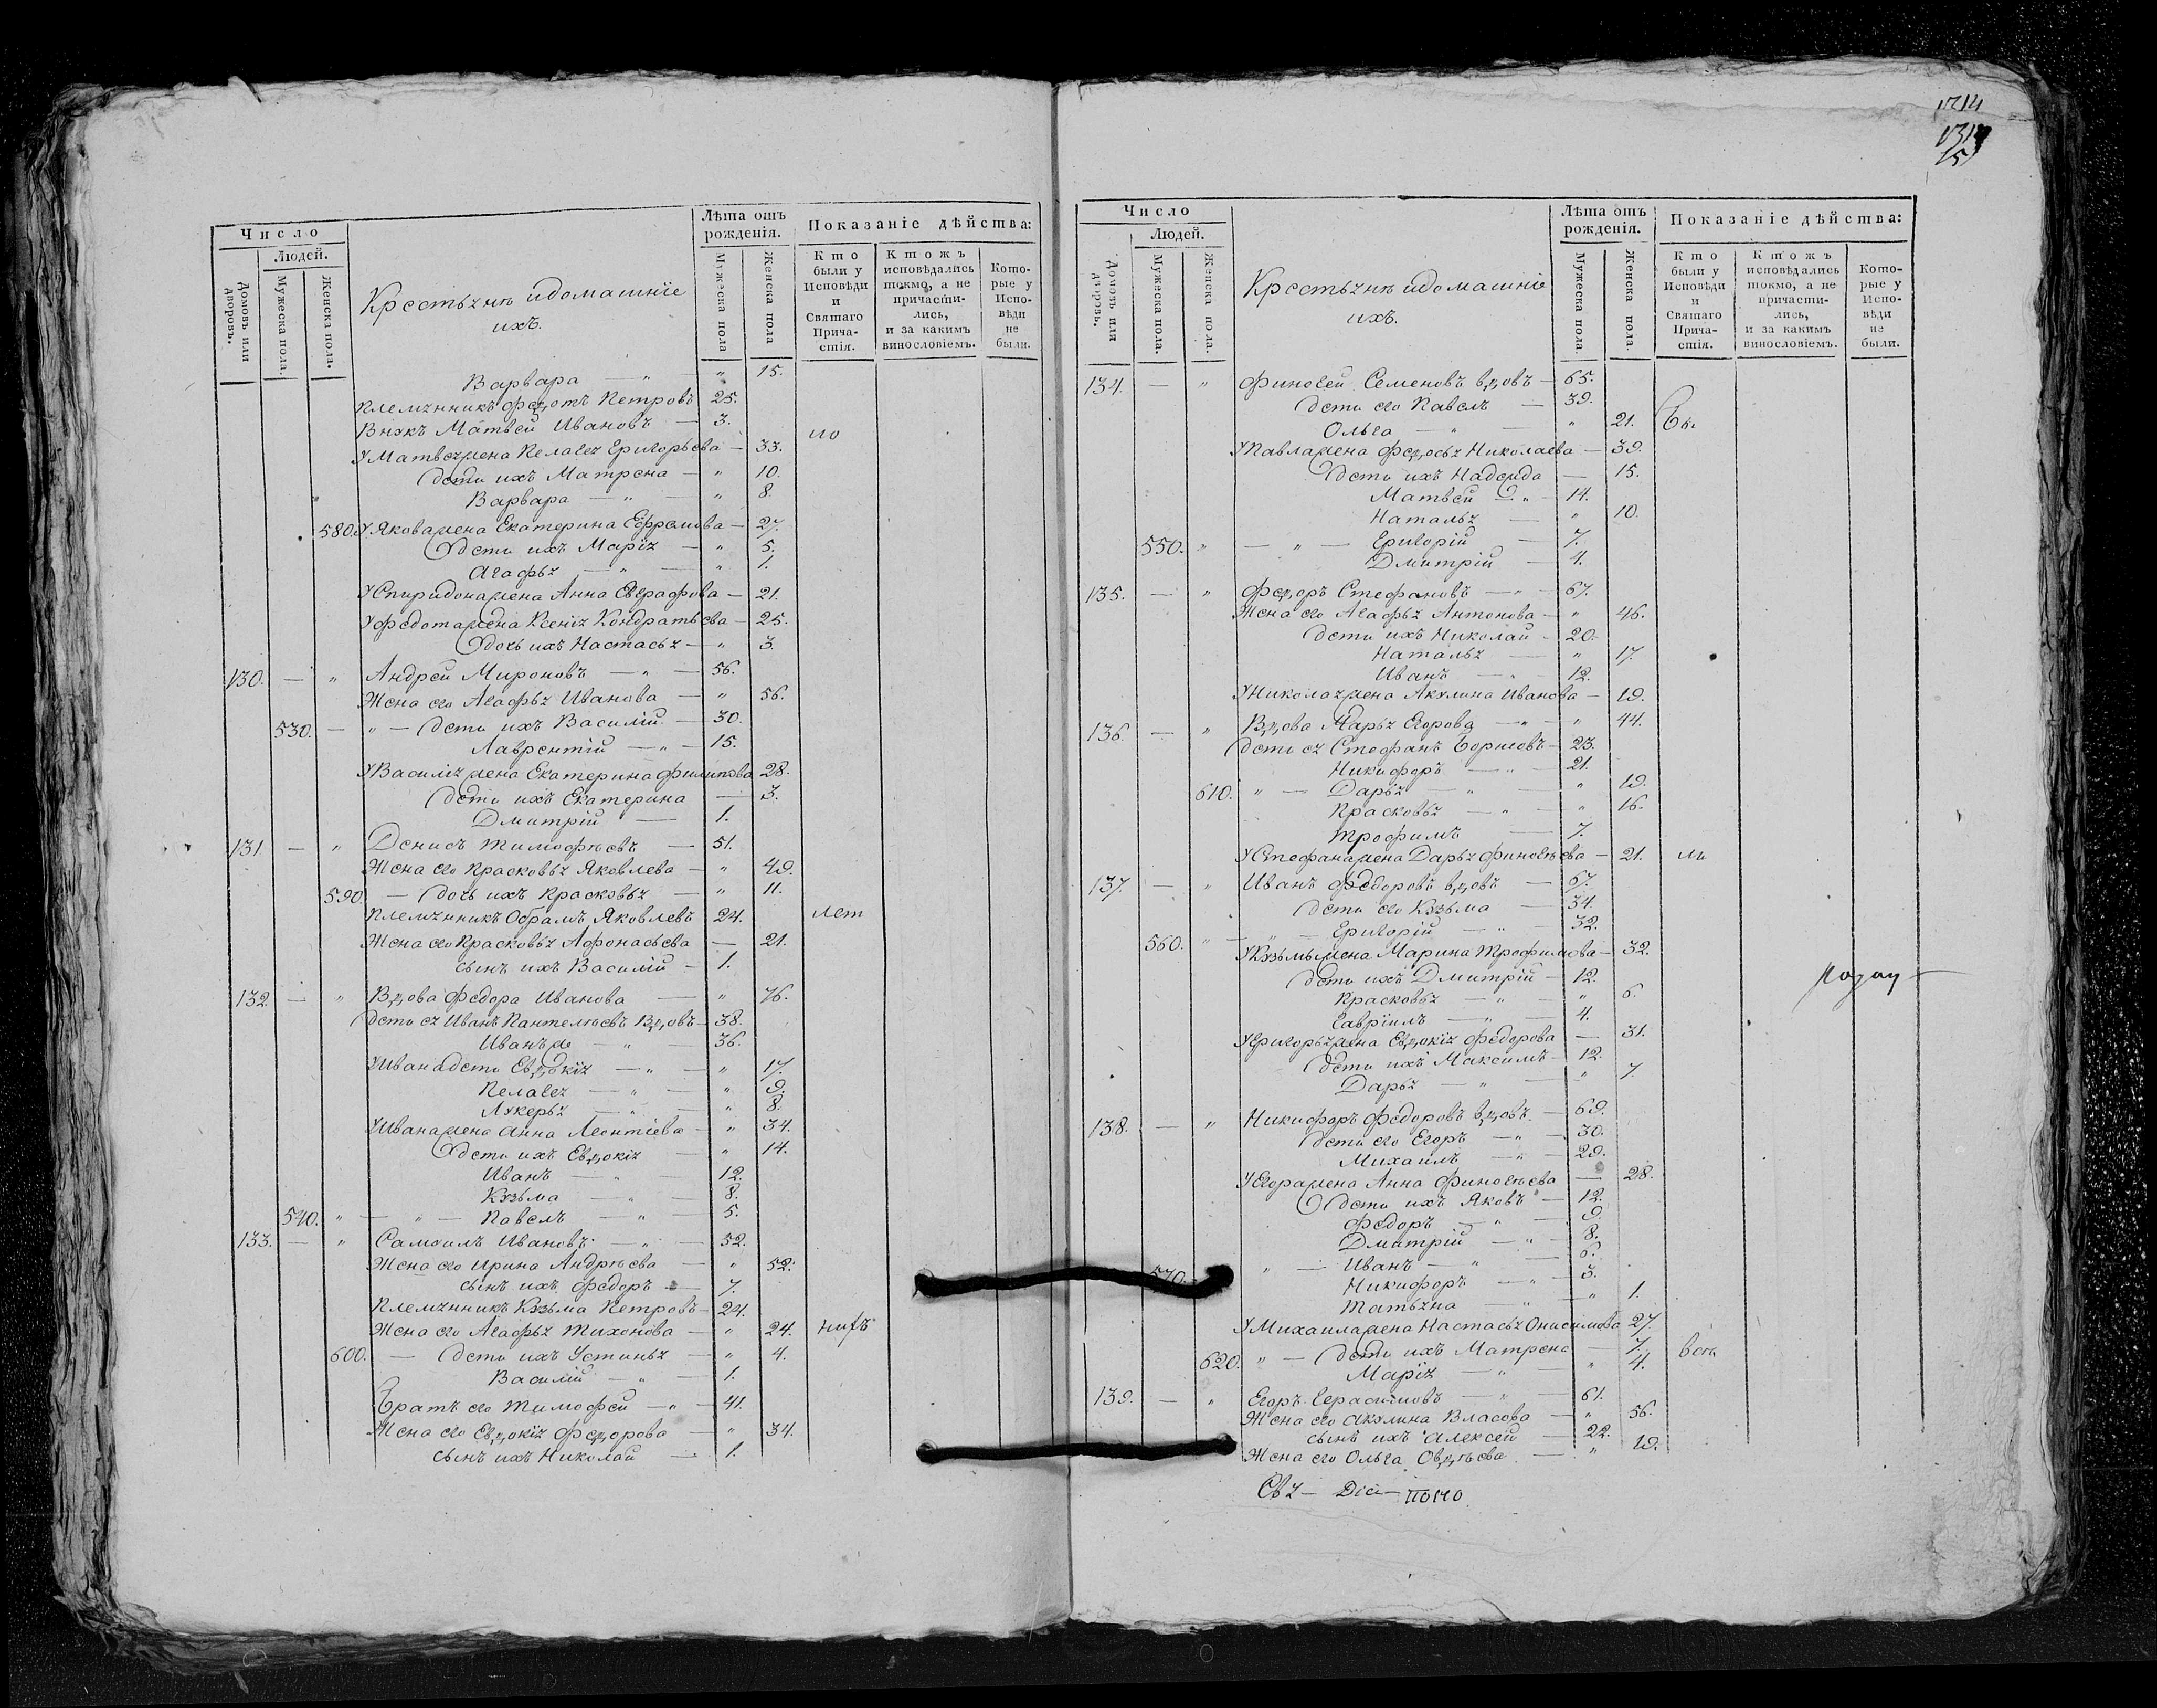 Число
Людей.
Домовъ или дворовъ.
Мужеска пола.
Женска пола.
Крестьянѣ идомашніе
ихъ.
Лѣта отъ рожденія.
Мужеска пола
Женска пола
Показаніе дѣйства:
Кто были у Исповѣди и Святаго Причастія.
Ктожъ исповѣдались токмо, а не причастились, и за какимъ винословіемъ.
Которые у Исповѣди не были.
Варвара — „ — „ 15.
племянникъ Федотъ Петровъ 25.
Внукъ Матвей Ивановъ — 3.
но
УМатвеяжена Пелагея Григорьева — 33.
дети ихъ Матрена — „ 10.
Варвара — „ — „ 8.
580. УЯковажена Екатерина Ефремова — 27.
дети ихъ Марія — „ 5.
Агафья — „ — „ 1.
УСпиридонажена Анна Евграфова — 21.
УФедотажена Ксенія Кондратьева — 25.
дочь ихъ Настасья — „ 3.
130. — „ Андрей Мироновъ — „ — 56.
Жена его Агафья Иванова — „ 56.
530. — „ — дети ихъ Василій — 30.
Лаврентій — „ — 15.
УВасиліяжена Екатерина Филипова 28.
дети ихъ Екатерина — 3.
Дмитрій — 1.
131 — „ Денисъ Тимофѣевъ — 51.
Жена его Прасковья Яковлева — „ 49.
590. — дочь ихъ Прасковья — „ 11.
племянникъ Обрамъ Яковлевъ 24.
лет
Жена его Прасковья Афонасьева — 21.
сынъ ихъ Василій — 1.
132. — „ Вдова Федора Иванова — „ 76.
дети ея Иванъ Пантелѣевъ Вдовъ — 38.
Иванъже — „ — 36.
УИванадети Евдокія — „ — „ 17.
Пелагея — „ — „ 9.
Лукерья — „ — „ 8.
УИванажена Анна Леонтіева — „ 34.
дети ихъ Евдокія — „ 14.
Иванъ — „ — 12.
Кузьма — „ — 8.
540. „ — „ — Павелъ — „ — 5.
133. — „ Самоилъ Ивановъ — „ — 52.
Жена его Ирина Андрѣева — „ 52.
сынъ ихъ Федоръ — 7.
племянникъ Кузьма Петровъ — 24.
Жена его Агафья Тихонова — „ 24.
600. — дети ихъ Устинья — „ 4.
Василій — „ — 1.
Братъ его Тимофей — „ — 41.
Жена его Евдокія Федорова — „ 34.
сынъ ихъ Николай — 1.
1314
15
Число
Людей.
Домовъ или дворовъ.
Мужеска пола.
Женска пола.
Крестьянѣ идомашніе
ихъ.
Лѣта отъ рожденія.
Мужеска пола
Женска пола.
Показаніе дѣйства:
Кто были у Исповѣди и Святаго Причастія.
Ктожъ исповѣдались токмо, а не причастились, и за какимъ винословіемъ.
Которые у Исповѣди не были.
134. — „ Финогей Семеновъ вдовъ — 65.
дети его Павелъ — 39.
Ольга — „ — „ 21.
Бы
УПавлажена Федосья Николаева — 39.
дети ихъ Надежда — 15.
Матвей — „ — 14.
Наталья — „ 10.
550. „ — „ — Григорій — 7.
Дмитрій — 4.
135. — „ Федоръ Стефановъ — „ — 67.
Жена его Агафья Антонова — „ 46.
дети ихъ Николай — 20.
Наталья — „ 17.
Иванъ — „ — 12.
УНиколаяжена Акулина Иванова — 19.
136. — „ Вдова Марья Егорова — „ — „ 44.
дети ея Стефанъ Борисовъ — 23.
Никифоръ — „ — 21.
610. „ — Дарья — „ — „ 19.
Прасковья — „ — „ 16.
Трофимъ — 7.
УСтефанажена Дарья Финогѣева — 21.
ли
137. — „ Иванъ Федоровъ вдовъ — 67.
дети его Кузьма — 34.
560. „ — „ — Григорій — „ — 32.
УКузьмыжена Марина Трофимова — 32.
дети ихъ Дмитрій — 12.
Прасковья — „ — „ 6.
Гавріилъ — „ — 4.
УГригорьяжена Евдокія Федорова — 31.
дети ихъ Максимъ — 12.
Дарья — „ — „ 7.
138. — „ Никифоръ Федоровъ вдовъ — 69.
дети его Егоръ — „ — 30.
Михаилъ — „ — 29.
УЕгоражена Анна Финогѣева — 28.
дети ихъ Яковъ — 12.
Федоръ — „ — 9.
Дмитрій — „ — 8.
570. „ — Иванъ — „ — 6.
Никифоръ — „ — 3.
Татьяна — „ — „ 1.
УМихаилажена Настасья Онисимова 27.
620. „ — дети ихъ Матрена — 7.
Марія — „ — „ 4.
139. — „ Егоръ Герасимовъ — „ — 61.
Жена его Акулина Власова — „ 56.
сынъ ихъ Алексей — 22.
Жена его Ольга Овдѣева — „ 19.